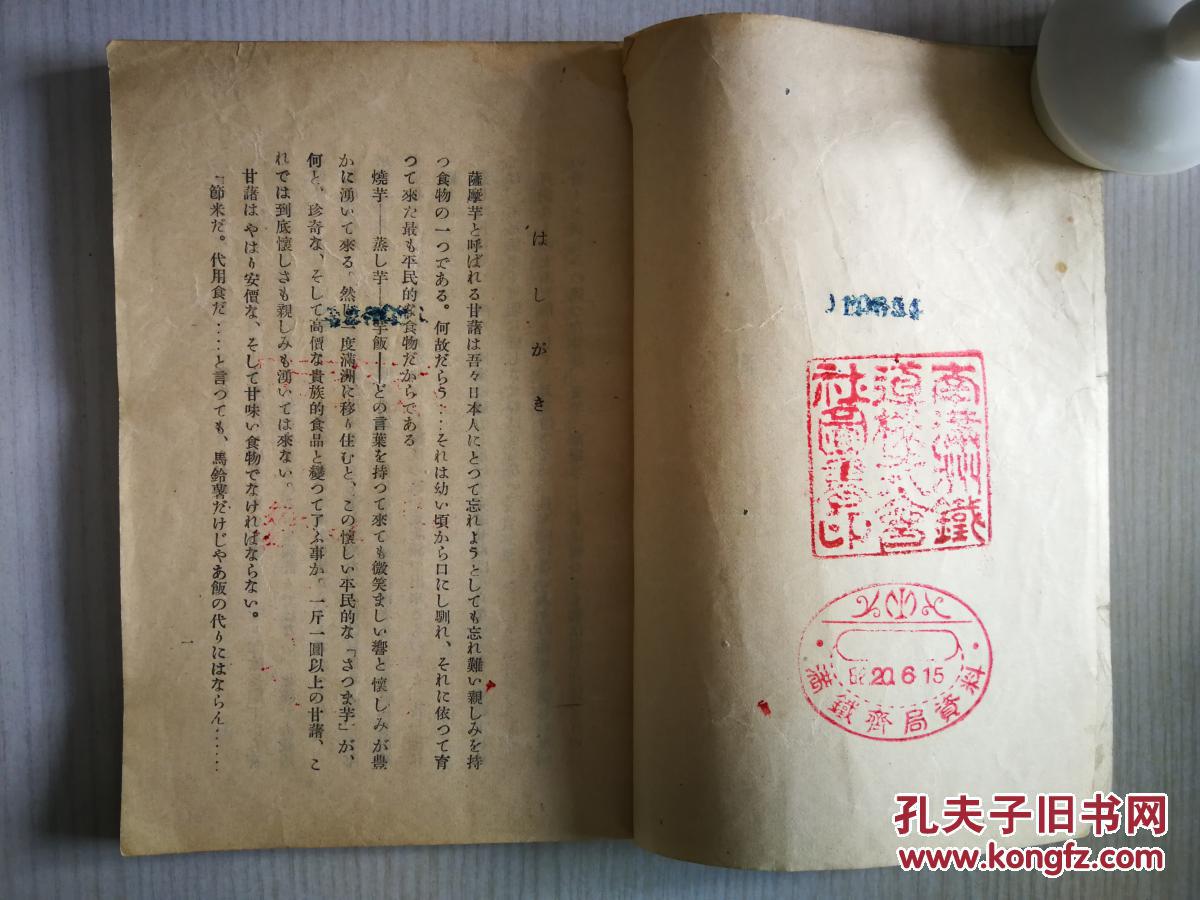 はしがき
薩摩芋と呼ばれる甘藷は吾々日本人にとつて忘れようとしても忘れ難い親しみを持
つ食物の一つである。何故だらう‥‥それは幼い頃から口にし馴れ、それに依つて育
つて來た最も平民的な食物だからである
燒芋――蒸し芋――芋飯――どの言葉を持つて來ても微笑ましい響と懷しみが豊
かに湧いて來る。然し一度滿洲に移り住むと、この懷しい平民的な「さつま芋」が、
何と、珍奇な、そして高價な貴族的食品と變つて了ふ事か。一斤一圓以上の甘藷、こ
れでは到底懷しさも親しみも湧いては來ない。
甘藷は やはり安價な、そして甘味い食物でなければならない。
「節米だ。代用食だ‥‥と言つても、馬鈴薯だけじゃあ飯の代りにはならん‥‥‥
一
南滿洲鐵
道株式會
社圖書印
昭20.6.15
滿鐵齊局資料
孔夫子旧书网
www.kongfz.com